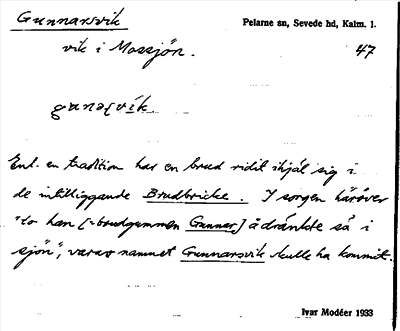 Gunnarsvik
Pelarne sn, Sevede hd, Kalm. l.
vik i Mossjön.
47
Enl. en tradition har en brud ridit ihjäl sig i
de intilliggande Brudbricke. I sorgen häröver
"to han [= brudgummen Gunnar] å dränkte så i
sjön", varav namnet Gunnarsvik skulle ha kommit.
Ivar Modéer 1933